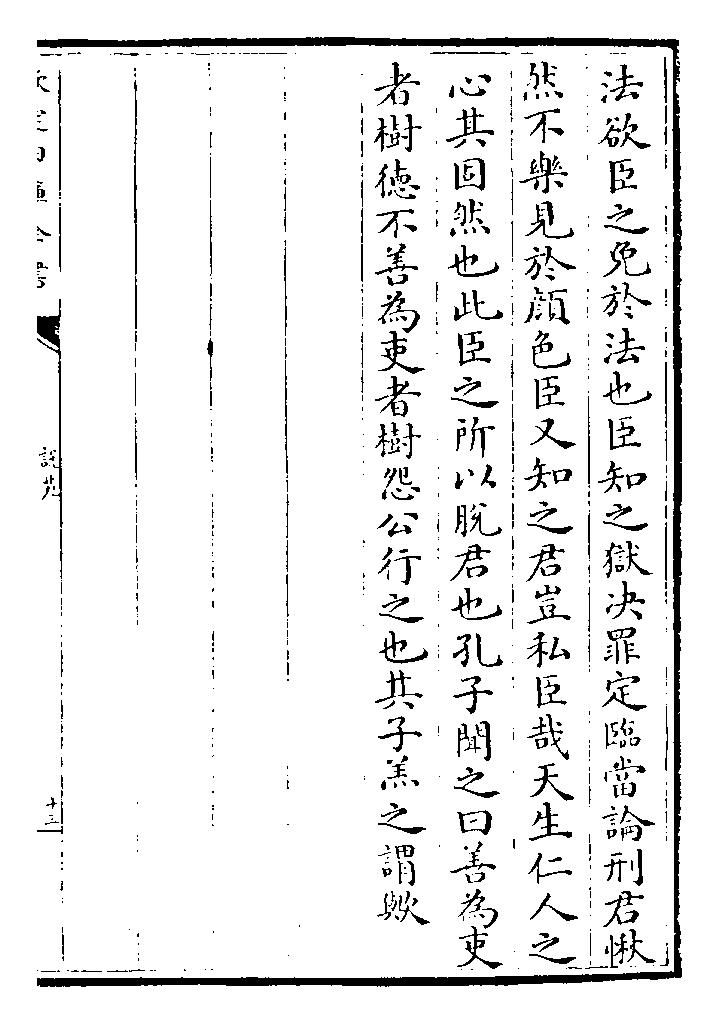 法欲臣之免於法也臣知之獄决罪定臨當論刑君愀
然不樂見於顔色臣又知之君豈私臣哉天生仁人之
心其固然也此臣之所以脱君也孔子聞之曰善為吏
者樹徳不善為吏者樹怨公行之也其子羔之謂歟
說苑
十三